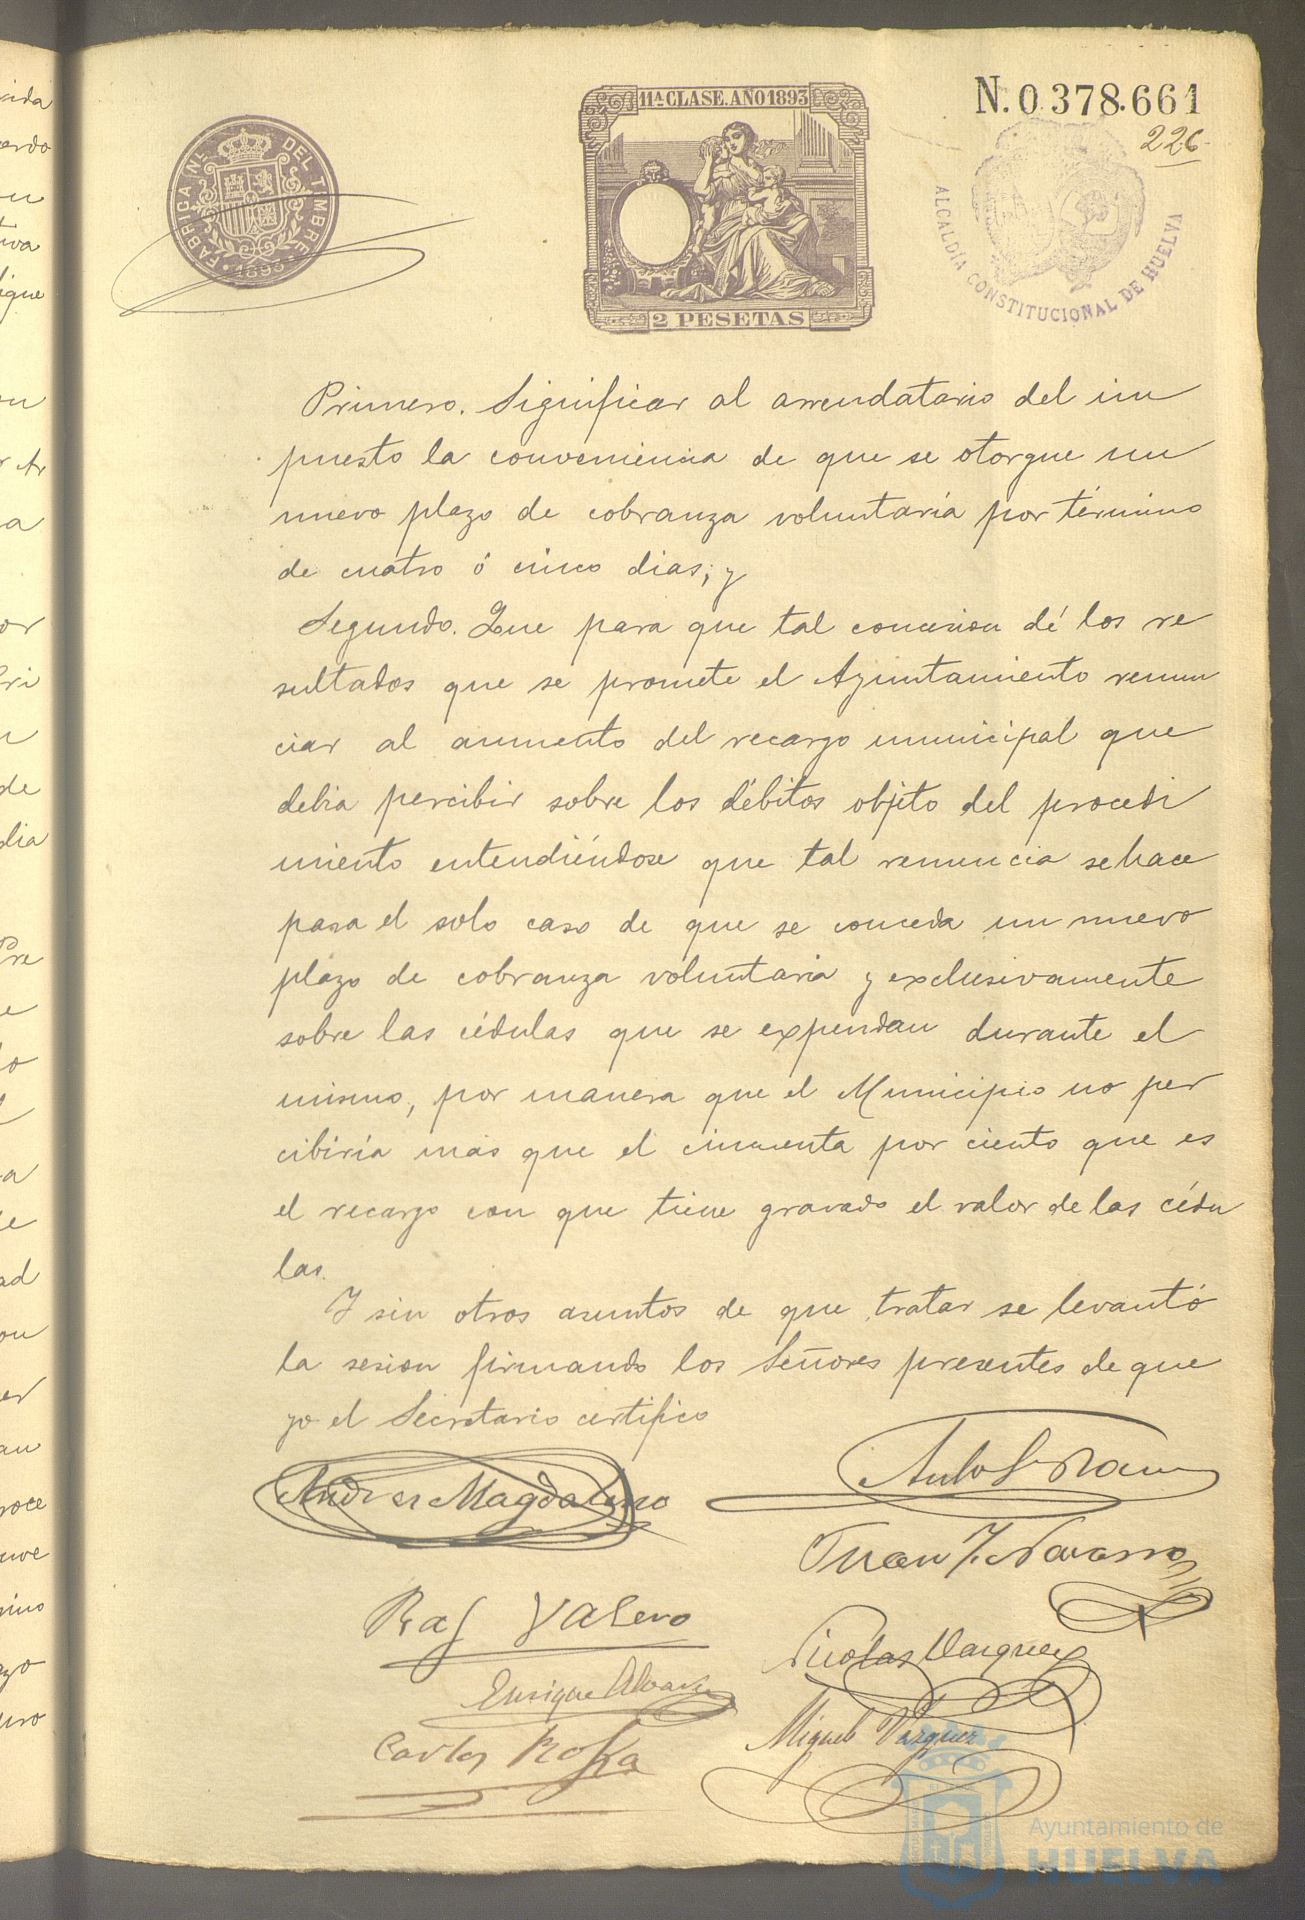 N. 0.378.661
226
11ª CLASE. AÑO 1893
2 PESETAS
FABRICA Nˡ. DEL TIMBRE
1893
ALCALDÍA CONSTITUCIONAL DE HUELVA
Primero. Significar al arrendatario del im
puesto la conveniencia de que se otorgue un
nuevo plazo de cobranza voluntaria por término
de cuatro ó cinco dias; y
Segundo. Que para que tal concesion dé los re
sultados que se promete el Ayuntamiento renun
ciar al aumento del recargo municipal que
debia percibir sobre los débitos objeto del procedi
miento entendiéndose que tal renuncia se hace
para el solo caso de que se conceda un nuevo
plazo de cobranza voluntaria y exclusivamente
sobre las cédulas que se expendan durante el
mismo, por manera que el Municipio no per
cibiria mas que el cincuenta por ciento que es
el recargo con que tiene gravado el valor de las cédu
las.
Y sin otros asuntos de que tratar se levantó
la sesion firmando los Señores presentes de que
yo el Secretario certifico
Andres Magdaleno
Juan J. Navarro
Raf Valero
Nicolas Vazquez
Enrique Alvarez
Miguel Vazquez
Carlos
Ayuntamiento de
HUELVA